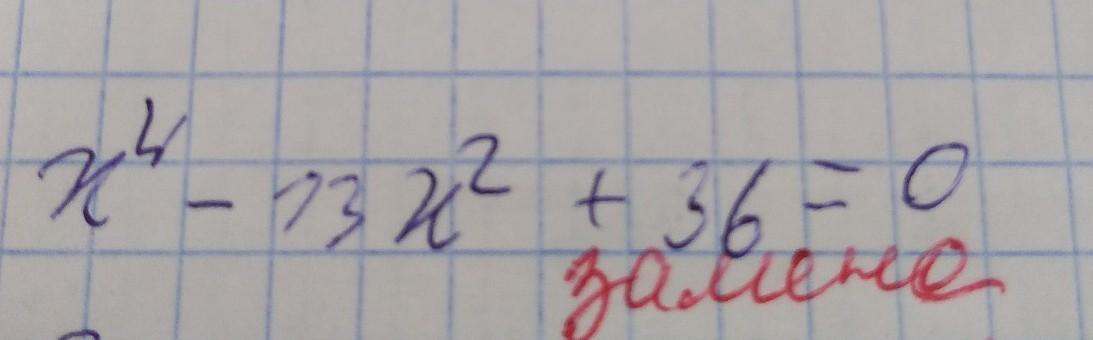 x⁴ - 13x² + 36 = 0
замена